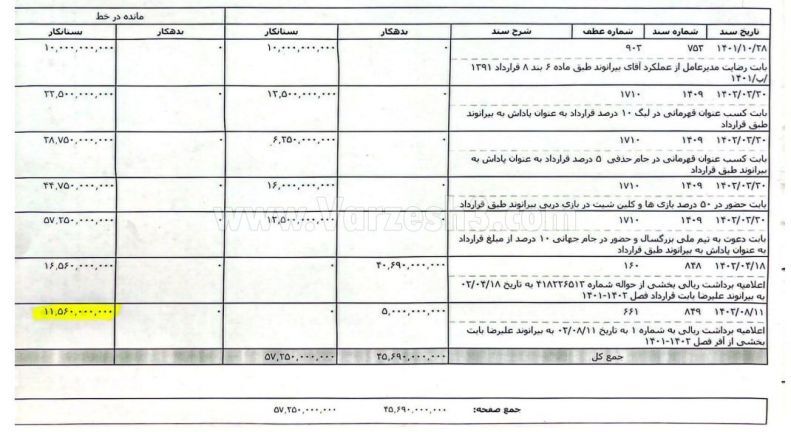 مانده در خط
تاریخ سند شماره سند شماره عطف شرح سند بدهکار بستانکار بدهکار بستانکار
۱۴۰۱/۱۰/۲۸ ۷۵۳ ۹۰۳ ۰ ۱۰,۰۰۰,۰۰۰,۰۰۰ ۰ ۱۰,۰۰۰,۰۰۰,۰۰۰
بابت رضایت مدیرعامل از عملکرد آقای بیرانوند طبق ماده ۶ بند ۸ قرارداد ۱۳۹۱
/پ/۱۴۰۱
۱۴۰۲/۰۳/۳۰ ۱۴۰۹ ۱۷۱۰ ۰ ۱۲,۵۰۰,۰۰۰,۰۰۰ ۰ ۲۲,۵۰۰,۰۰۰,۰۰۰
بابت کسب عنوان قهرمانی در لیگ ۱۰ درصد قرارداد به عنوان پاداش به بیرانوند
طبق قرارداد
۱۴۰۲/۰۳/۳۰ ۱۴۰۹ ۱۷۱۰ ۰ ۶,۲۵۰,۰۰۰,۰۰۰ ۰ ۲۸,۷۵۰,۰۰۰,۰۰۰
بابت کسب عنوان قهرمانی در جام حذفی ۵ درصد قرارداد به عنوان پاداش به
بیرانوند طبق قرارداد
۱۴۰۲/۰۳/۳۰ ۱۴۰۹ ۱۷۱۰ ۰ ۱۶,۰۰۰,۰۰۰,۰۰۰ ۰ ۴۴,۷۵۰,۰۰۰,۰۰۰
بابت حضور در ۵۰ درصد بازی ها و کلین شیت در بازی دربی بیرانوند طبق قرارداد
۱۴۰۲/۰۳/۳۰ ۱۴۰۹ ۱۷۱۰ ۰ ۱۲,۵۰۰,۰۰۰,۰۰۰ ۰ ۵۷,۲۵۰,۰۰۰,۰۰۰
بابت دعوت به تیم ملی بزرگسال و حضور در جام جهانی ۱۰ درصد از مبلغ قرارداد
به عنوان پاداش به بیرانوند طبق قرارداد
۱۴۰۲/۰۴/۱۸ ۸۴۸ ۱۶۰ ۴۰,۶۹۰,۰۰۰,۰۰۰ ۰ ۰ ۱۶,۵۶۰,۰۰۰,۰۰۰
اعلامیه برداشت ریالی بخشی از حواله شماره ۴۱۸۲۲۶۵۱۲ به تاریخ ۰۲/۰۴/۱۸
به بیرانوند علیرضا بابت قرارداد فصل ۱۴۰۲-۱۴۰۱
۱۴۰۲/۰۸/۱۱ ۸۴۹ ۶۶۱ ۵,۰۰۰,۰۰۰,۰۰۰ ۰ ۰ ۱۱,۵۶۰,۰۰۰,۰۰۰
اعلامیه برداشت ریالی به شماره ۱ به تاریخ ۰۲/۰۸/۱۱ به بیرانوند علیرضا بابت
بخشی از آفر فصل ۱۴۰۲-۱۴۰۱
جمع کل ۴۵,۶۹۰,۰۰۰,۰۰۰ ۵۷,۲۵۰,۰۰۰,۰۰۰
جمع صفحه: ۴۵,۶۹۰,۰۰۰,۰۰۰ ۵۷,۲۵۰,۰۰۰,۰۰۰
www.Varzesh3.com